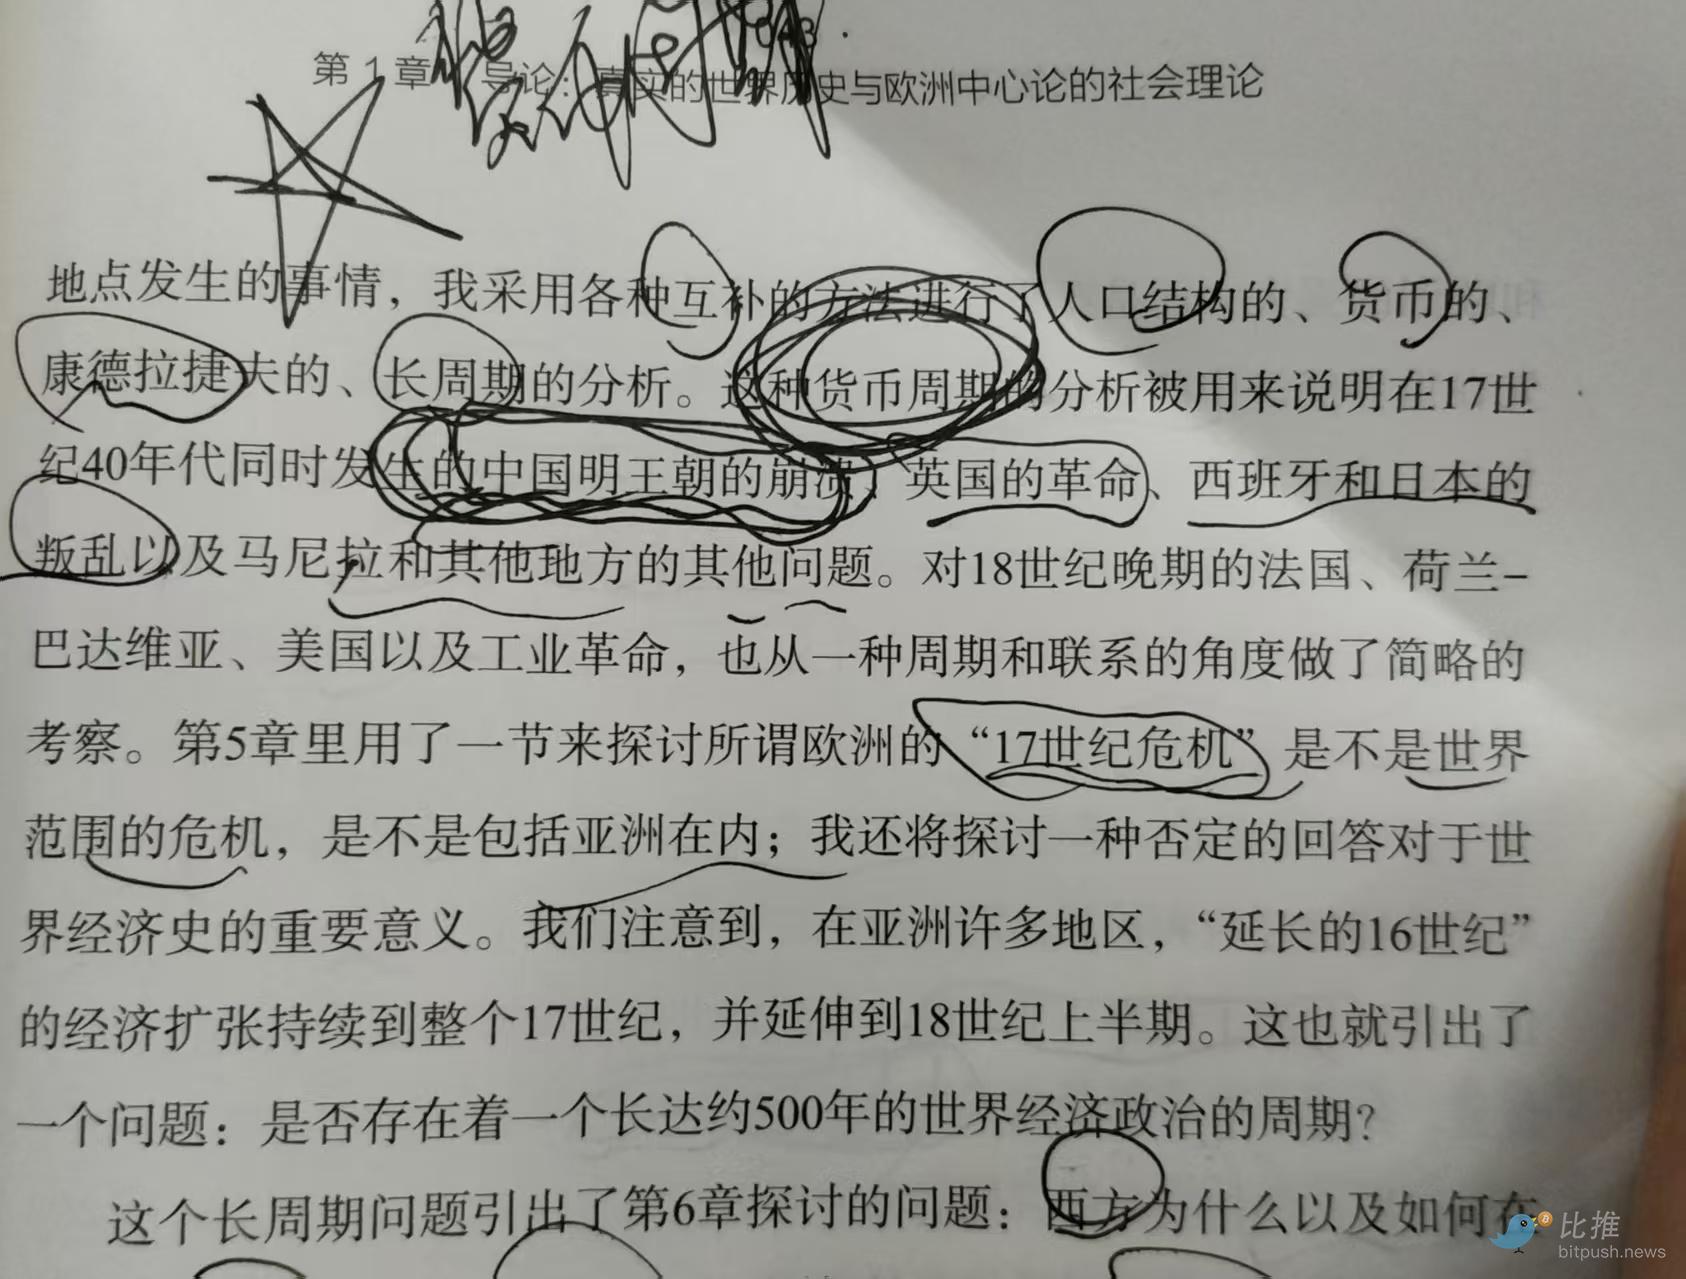 043
第1章 导论：真实的世界历史与欧洲中心论的社会理论
地点发生的事情，我采用各种互补的方法进行了人口结构的、货币的、
康德拉捷夫的、长周期的分析。这种货币周期的分析被用来说明在17世
纪40年代同时发生的中国明王朝的崩溃、英国的革命、西班牙和日本的
叛乱以及马尼拉和其他地方的其他问题。对18世纪晚期的法国、荷兰–
巴达维亚、美国以及工业革命，也从一种周期和联系的角度做了简略的
考察。第5章里用了一节来探讨所谓欧洲的“17世纪危机”是不是世界
范围的危机，是不是包括亚洲在内；我还将探讨一种否定的回答对于世
界经济史的重要意义。我们注意到，在亚洲许多地区，“延长的16世纪”
的经济扩张持续到整个17世纪，并延伸到18世纪上半期。这也就引出了
一个问题：是否存在着一个长达约500年的世界经济政治的周期？
这个长周期问题引出了第6章探讨的问题：西方为什么以及如何在
比推
bitpush.news